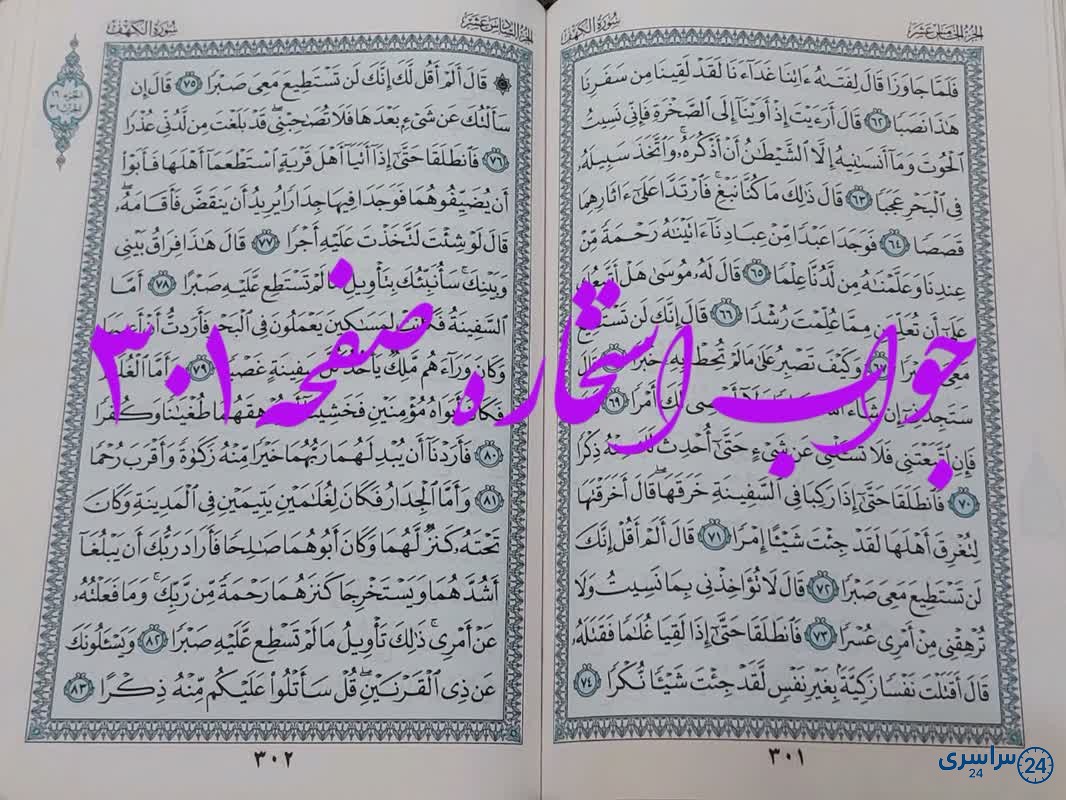 الجزء الخامس عشر
سورة الكهف
فَلَمَّا جَاوَزَا قَالَ لِفَتَىٰهُ ءَاتِنَا غَدَآءَنَا لَقَدْ لَقِينَا مِن سَفَرِنَا
هَٰذَا نَصَبًا ٦٢ قَالَ أَرَءَيْتَ إِذْ أَوَيْنَآ إِلَى ٱلصَّخْرَةِ فَإِنِّى نَسِيتُ
ٱلْحُوتَ وَمَآ أَنسَىٰنِيهُ إِلَّا ٱلشَّيْطَٰنُ أَنْ أَذْكُرَهُۥ وَٱتَّخَذَ سَبِيلَهُۥ
فِى ٱلْبَحْرِ عَجَبًا ٦٣ قَالَ ذَٰلِكَ مَا كُنَّا نَبْغِ فَٱرْتَدَّا عَلَىٰٓ ءَاثَارِهِمَا
قَصَصًا ٦٤ فَوَجَدَا عَبْدًا مِّنْ عِبَادِنَآ ءَاتَيْنَٰهُ رَحْمَةً مِّنْ
عِندِنَا وَعَلَّمْنَٰهُ مِن لَّدُنَّا عِلْمًا ٦٥ قَالَ لَهُۥ مُوسَىٰ هَلْ أَتَّبِعُكَ
عَلَىٰٓ أَن تُعَلِّمَنِ مِمَّا عُلِّمْتَ رُشْدًا ٦٦ قَالَ إِنَّكَ لَن تَسْتَطِيعَ
مَعِىَ صَبْرًا ٦٧ وَكَيْفَ تَصْبِرُ عَلَىٰ مَا لَمْ تُحِطْ بِهِۦ خُبْرًا ٦٨ قَالَ
سَتَجِدُنِىٓ إِن شَآءَ ٱللَّهُ صَابِرًا وَلَآ أَعْصِى لَكَ أَمْرًا ٦٩ قَالَ
فَإِنِ ٱتَّبَعْتَنِى فَلَا تَسْـَٔلْنِى عَن شَىْءٍ حَتَّىٰٓ أُحْدِثَ لَكَ مِنْهُ ذِكْرًا
٧٠ فَٱنطَلَقَا حَتَّىٰٓ إِذَا رَكِبَا فِى ٱلسَّفِينَةِ خَرَقَهَا قَالَ أَخَرَقْتَهَا
لِتُغْرِقَ أَهْلَهَا لَقَدْ جِئْتَ شَيْـًٔا إِمْرًا ٧١ قَالَ أَلَمْ أَقُلْ إِنَّكَ
لَن تَسْتَطِيعَ مَعِىَ صَبْرًا ٧٢ قَالَ لَا تُؤَاخِذْنِى بِمَا نَسِيتُ وَلَا
تُرْهِقْنِى مِنْ أَمْرِى عُسْرًا ٧٣ فَٱنطَلَقَا حَتَّىٰٓ إِذَا لَقِيَا غُلَٰمًا فَقَتَلَهُۥ
قَالَ أَقَتَلْتَ نَفْسًا زَكِيَّةًۢ بِغَيْرِ نَفْسٍ لَّقَدْ جِئْتَ شَيْـًٔا نُّكْرًا ٧٤
٣٠١
الجزء السادس عشر
سورة الكهف
الجزء ١٦
۞ قَالَ أَلَمْ أَقُل لَّكَ إِنَّكَ لَن تَسْتَطِيعَ مَعِىَ صَبْرًا ٧٥ قَالَ إِن
سَأَلْتُكَ عَن شَىْءٍۭ بَعْدَهَا فَلَا تُصَٰحِبْنِى قَدْ بَلَغْتَ مِن لَّدُنِّى عُذْرًا
٧٦ فَٱنطَلَقَا حَتَّىٰٓ إِذَآ أَتَيَآ أَهْلَ قَرْيَةٍ ٱسْتَطْعَمَآ أَهْلَهَا فَأَبَوْا۟
أَن يُضَيِّفُوهُمَا فَوَجَدَا فِيهَا جِدَارًا يُرِيدُ أَن يَنقَضَّ فَأَقَامَهُۥ
قَالَ لَوْ شِئْتَ لَتَّخَذْتَ عَلَيْهِ أَجْرًا ٧٧ قَالَ هَٰذَا فِرَاقُ بَيْنِى
وَبَيْنِكَ سَأُنَبِّئُكَ بِتَأْوِيلِ مَا لَمْ تَسْتَطِع عَّلَيْهِ صَبْرًا ٧٨ أَمَّا
ٱلسَّفِينَةُ فَكَانَتْ لِمَسَٰكِينَ يَعْمَلُونَ فِى ٱلْبَحْرِ فَأَرَدتُّ أَنْ أَعِيبَهَا
وَكَانَ وَرَآءَهُم مَّلِكٌ يَأْخُذُ كُلَّ سَفِينَةٍ غَصْبًا ٧٩ وَأَمَّا ٱلْغُلَٰمُ
فَكَانَ أَبَوَاهُ مُؤْمِنَيْنِ فَخَشِينَآ أَن يُرْهِقَهُمَا طُغْيَٰنًا وَكُفْرًا
٨٠ فَأَرَدْنَآ أَن يُبْدِلَهُمَا رَبُّهُمَا خَيْرًا مِّنْهُ زَكَوٰةً وَأَقْرَبَ رُحْمًا
٨١ وَأَمَّا ٱلْجِدَارُ فَكَانَ لِغُلَٰمَيْنِ يَتِيمَيْنِ فِى ٱلْمَدِينَةِ وَكَانَ
تَحْتَهُۥ كَنزٌ لَّهُمَا وَكَانَ أَبُوهُمَا صَٰلِحًا فَأَرَادَ رَبُّكَ أَن يَبْلُغَآ
أَشُدَّهُمَا وَيَسْتَخْرِجَا كَنزَهُمَا رَحْمَةً مِّن رَّبِّكَ وَمَا فَعَلْتُهُۥ
عَنْ أَمْرِى ذَٰلِكَ تَأْوِيلُ مَا لَمْ تَسْطِع عَّلَيْهِ صَبْرًا ٨٢ وَيَسْـَٔلُونَكَ
عَن ذِى ٱلْقَرْنَيْنِ قُلْ سَأَتْلُوا۟ عَلَيْكُم مِّنْهُ ذِكْرًا ٨٣
٣٠٢
جواب استخاره صفحه ۳۰۱
سراسری 24
24